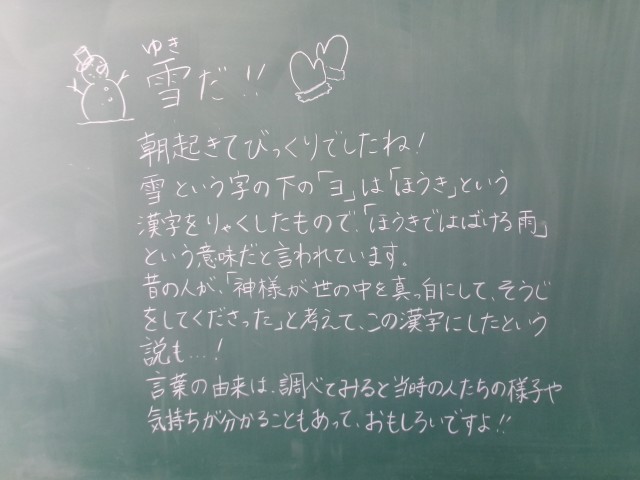 ゆき
雪だ!!
朝起きてびっくりでしたね!
雪という字の下の「ヨ」は「ほうき」という
漢字をりゃくしたもので、「ほうきではばける雨」
という意味だと言われています。
昔の人が、「神様が世の中を真っ白にして、そうじ
をしてくださった」と考えて、この漢字にしたという
説も…!
言葉の由来は、調べてみると当時の人たちの様子や
気持ちが分かることもあって、おもしろいですよ!!